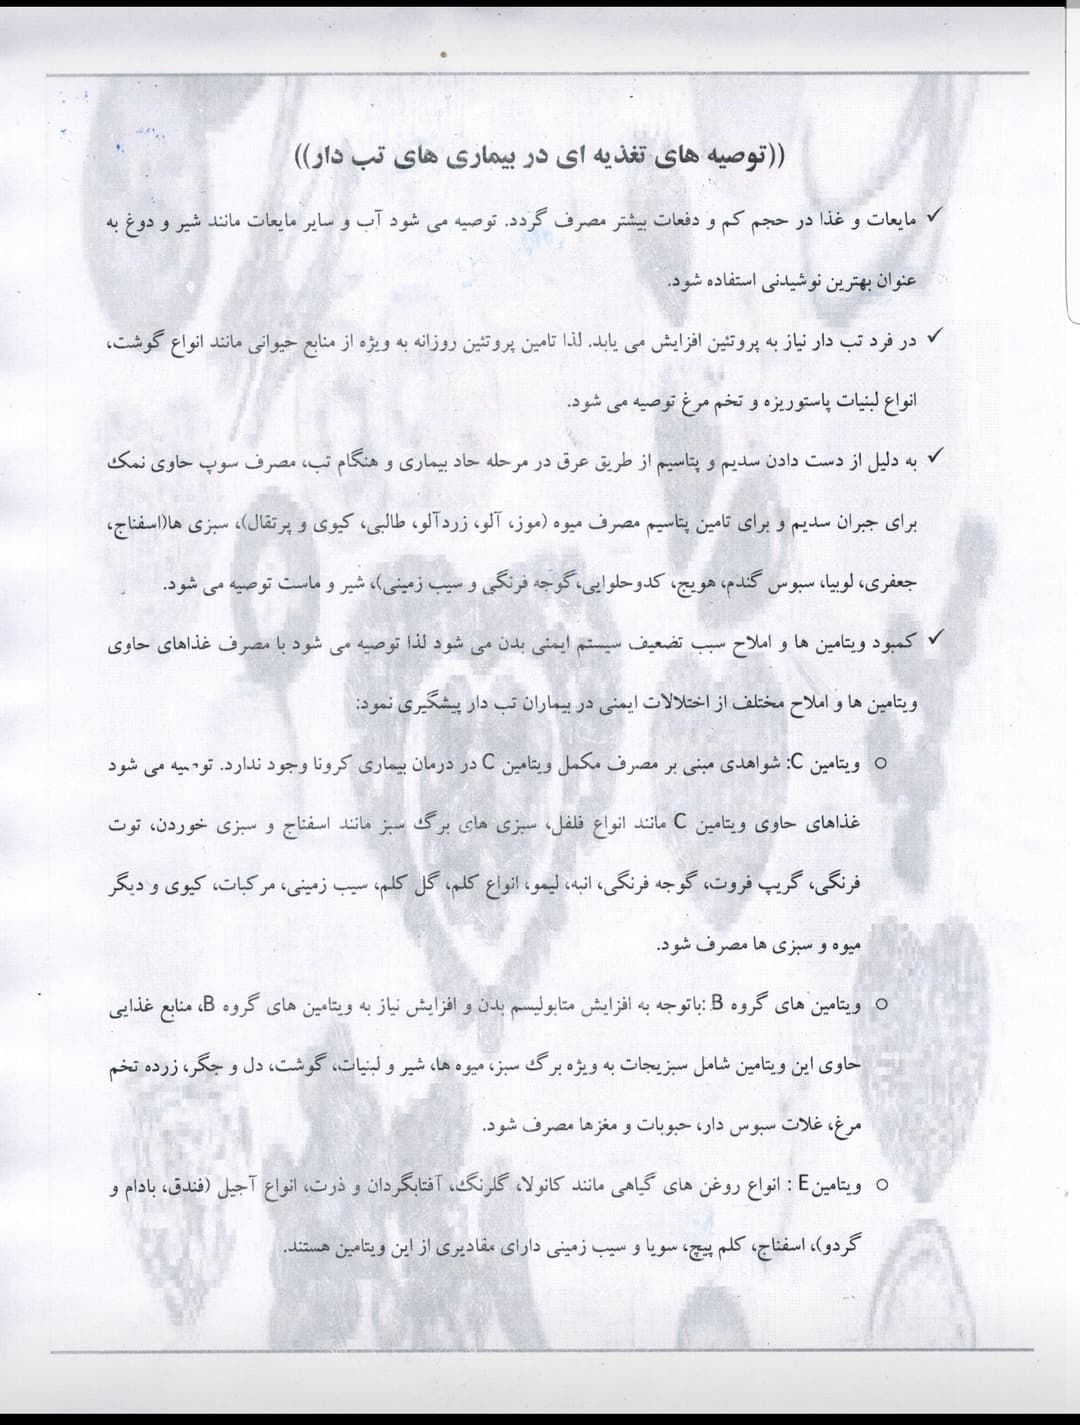 ((توصیه های تغذیه ای در بیماری های تب دار))
✓ مایعات و غذا در حجم کم و دفعات بیشتر مصرف گردد. توصیه می شود آب و سایر مایعات مانند شیر و دوغ به
عنوان بهترین نوشیدنی استفاده شود.
✓ در فرد تب دار نیاز به پروتئین افزایش می یابد. لذا تامین پروتئین روزانه به ویژه از منابع حیوانی مانند انواع گوشت،
انواع لبنیات پاستوریزه و تخم مرغ توصیه می شود.
✓ به دلیل از دست دادن سدیم و پتاسیم از طریق عرق در مرحله حاد بیماری و هنگام تب، مصرف سوپ حاوی نمک
برای جبران سدیم و برای تامین پتاسیم مصرف میوه (موز، آلو، زردآلو، طالبی، کیوی و پرتقال)، سبزی ها(اسفناج،
جعفری، لوبیا، سبوس گندم، هویج، کدوحلوایی،گوجه فرنگی و سیب زمینی)، شیر و ماست توصیه می شود.
✓ کمبود ویتامین ها و املاح سبب تضعیف سیستم ایمنی بدن می شود لذا توصیه می شود با مصرف غذاهای حاوی
ویتامین ها و املاح مختلف از اختلالات ایمنی در بیماران تب دار پیشگیری نمود:
○ ویتامین C: شواهدی مبنی بر مصرف مکمل ویتامین C در درمان بیماری کرونا وجود ندارد. توصیه می شود
غذاهای حاوی ویتامین C مانند انواع فلفل، سبزی های برگ سبز مانند اسفناج و سبزی خوردن، توت
فرنگی، گریپ فروت، گوجه فرنگی، انبه، لیمو، انواع کلم، گل کلم، سیب زمینی، مرکبات، کیوی و دیگر
میوه و سبزی ها مصرف شود.
○ ویتامین های گروه B :باتوجه به افزایش متابولیسم بدن و افزایش نیاز به ویتامین های گروه B، منابع غذایی
حاوی این ویتامین شامل سبزیجات به ویژه برگ سبز، میوه ها، شیر و لبنیات، گوشت، دل و جگر، زرده تخم
مرغ، غلات سبوس دار، حبوبات و مغزها مصرف شود.
○ ویتامینE : انواع روغن های گیاهی مانند کانولا، گلرنگ، آفتابگردان و ذرت، انواع آجیل (فندق، بادام و
گردو)، اسفناج، کلم پیچ، سویا و سیب زمینی دارای مقادیری از این ویتامین هستند.